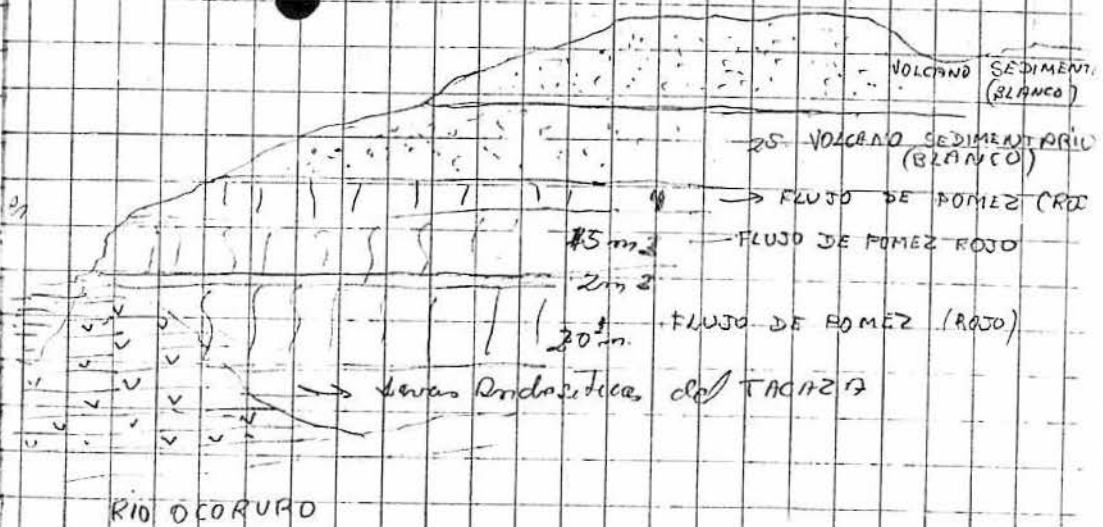 VOLCANO SEDIMENT.
(BLANCO)
25 VOLCANO SEDIMENTARIO
(BLANCO)
→ FLUJO DE POMEZ (ROJ
15 m FLUJO DE POMEZ ROJO
2m
20 m. FLUJO DE POMEZ (ROJO)
→ Lavas Andesiticas del TACAZA
RIO OCORURO